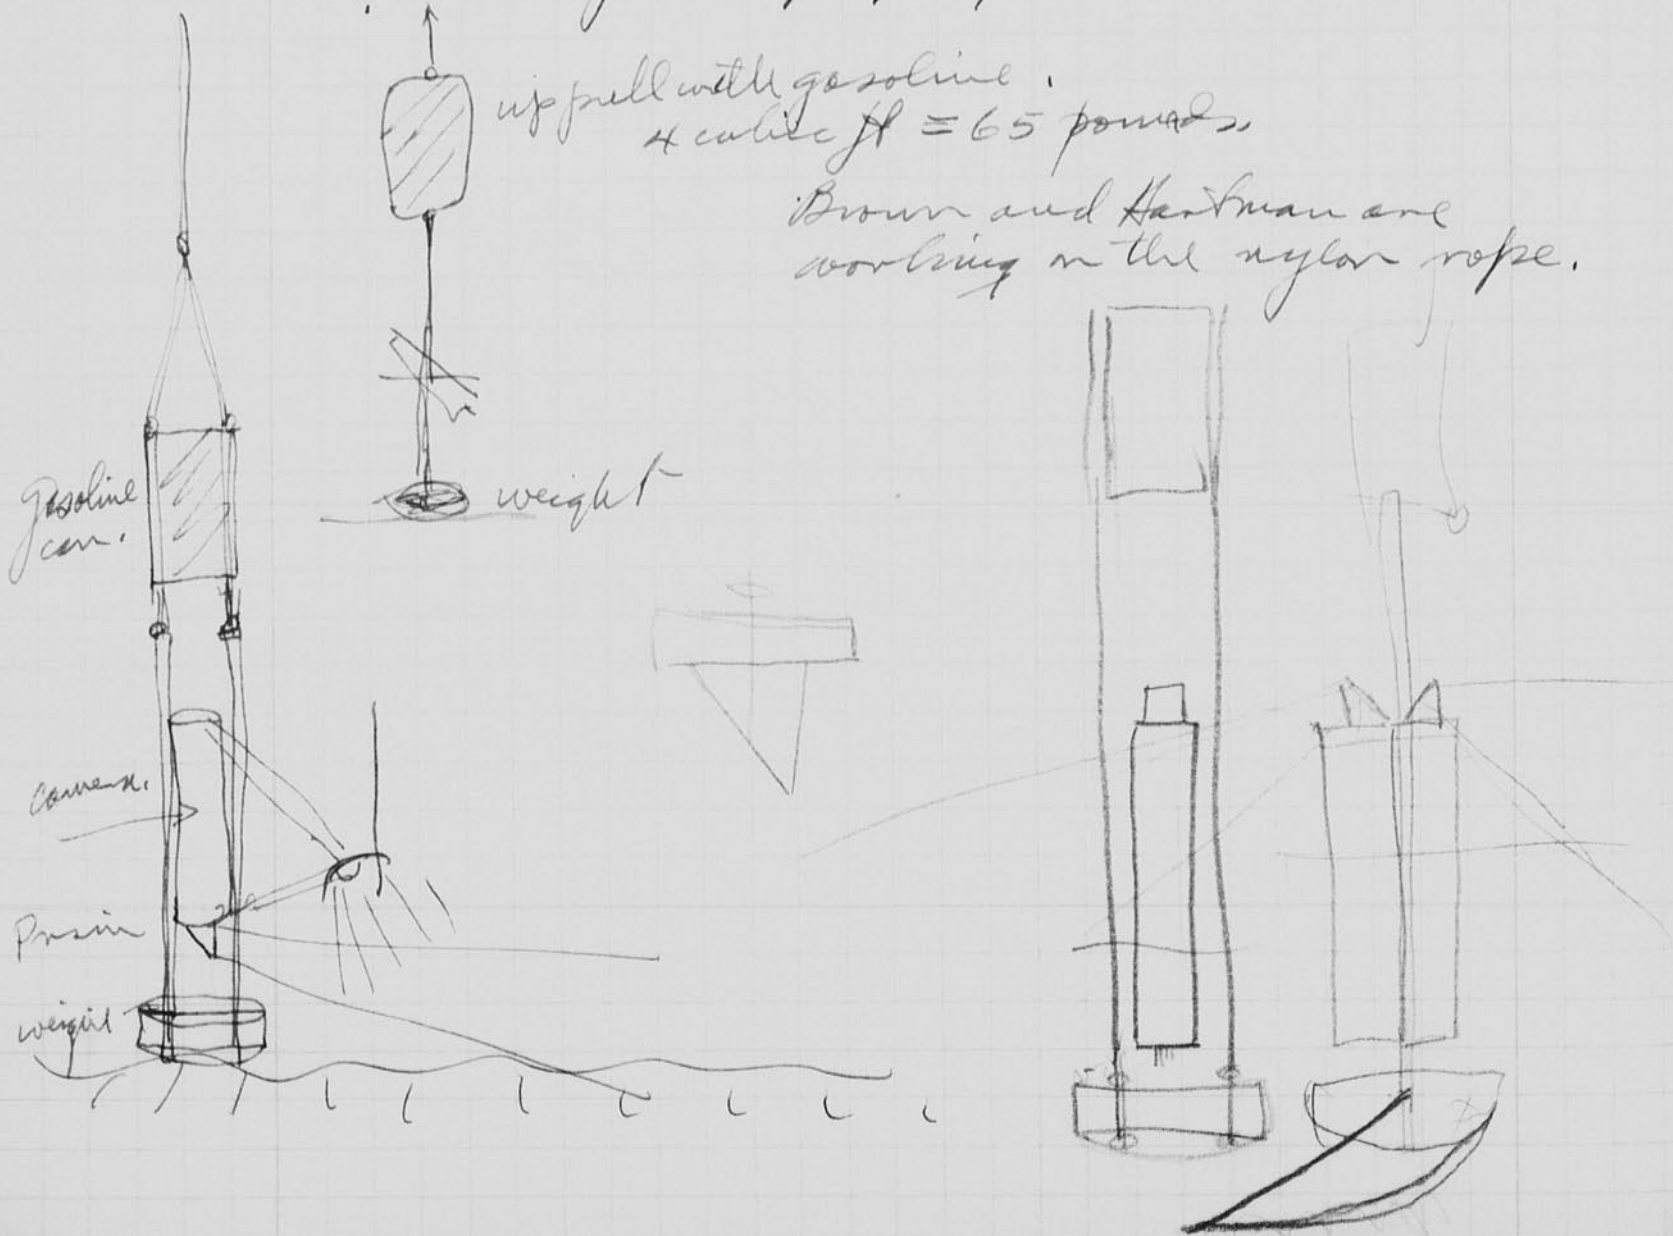 up pull with gasoline.
4 cubic ft = 65 pounds.
Brown and Hartman are
working on the nylon rope.
weight
gasoline
can.
camera.
Prism
weight